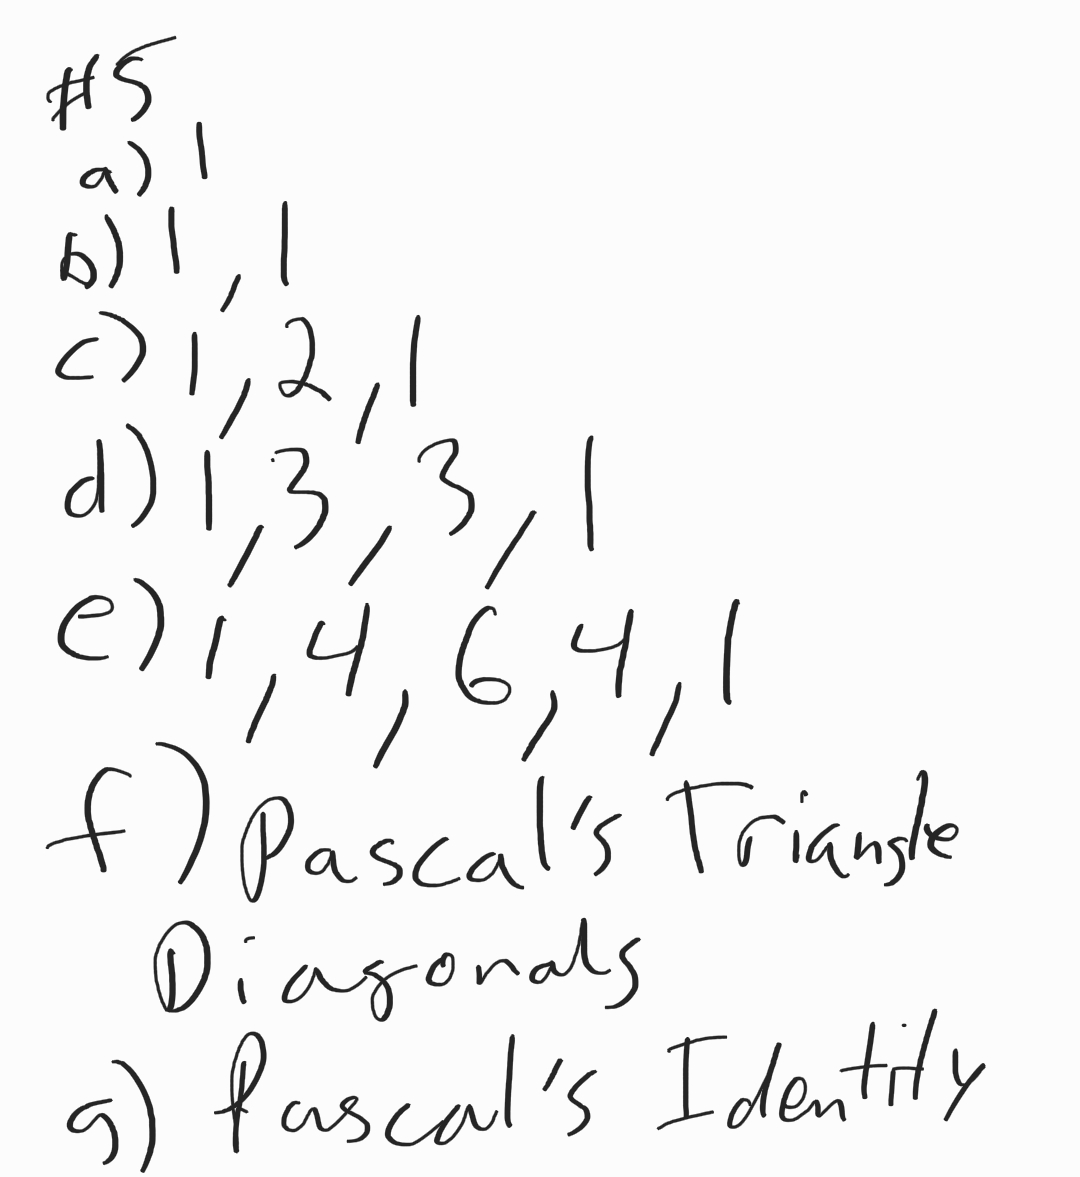 #5
a) 1
b) 1, 1
c) 1, 2, 1
d) 1, 3, 3, 1
e) 1, 4, 6, 4, 1
f) Pascal's Triangle
Diagonals
g) Pascal's Identity